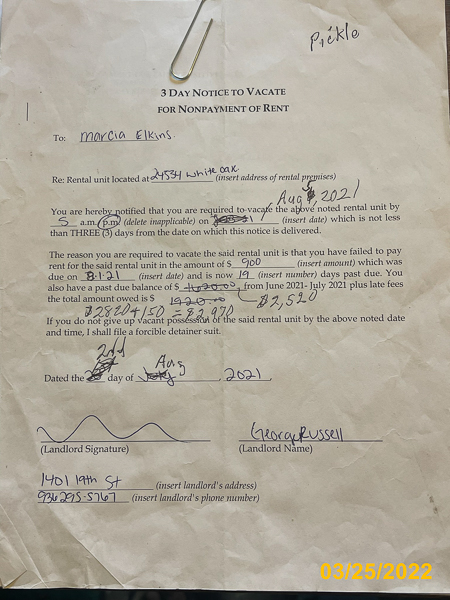 Pickle
3 DAY NOTICE TO VACATE
FOR NONPAYMENT OF RENT
To: Marcia Elkins.
Re: Rental unit located at 24534 white oak (insert address of rental premises)
Aug 5, 2021
You are hereby notified that you are required to vacate the above noted rental unit by
5 a.m./p.m (delete inapplicable) on (insert date) which is not less
than THREE (3) days from the date on which this notice is delivered.
The reason you are required to vacate the said rental unit is that you have failed to pay
rent for the said rental unit in the amount of $ 900 (insert amount) which was
due on 8-1-21 (insert date) and is now 19 (insert number) days past due. You
also have a past due balance of $ 1620.00, from June 2021- July 2021 plus late fees
the total amount owed is $ 1920.00 $2,520
$2820+150 = $2,970
If you do not give up vacant possession of the said rental unit by the above noted date
and time, I shall file a forcible detainer suit.
2nd Aug
Dated the day of July, 2021.
George Russell
(Landlord Signature) (Landlord Name)
1401 19th St (insert landlord's address)
936 295-5767 (insert landlord's phone number)
03/25/2022